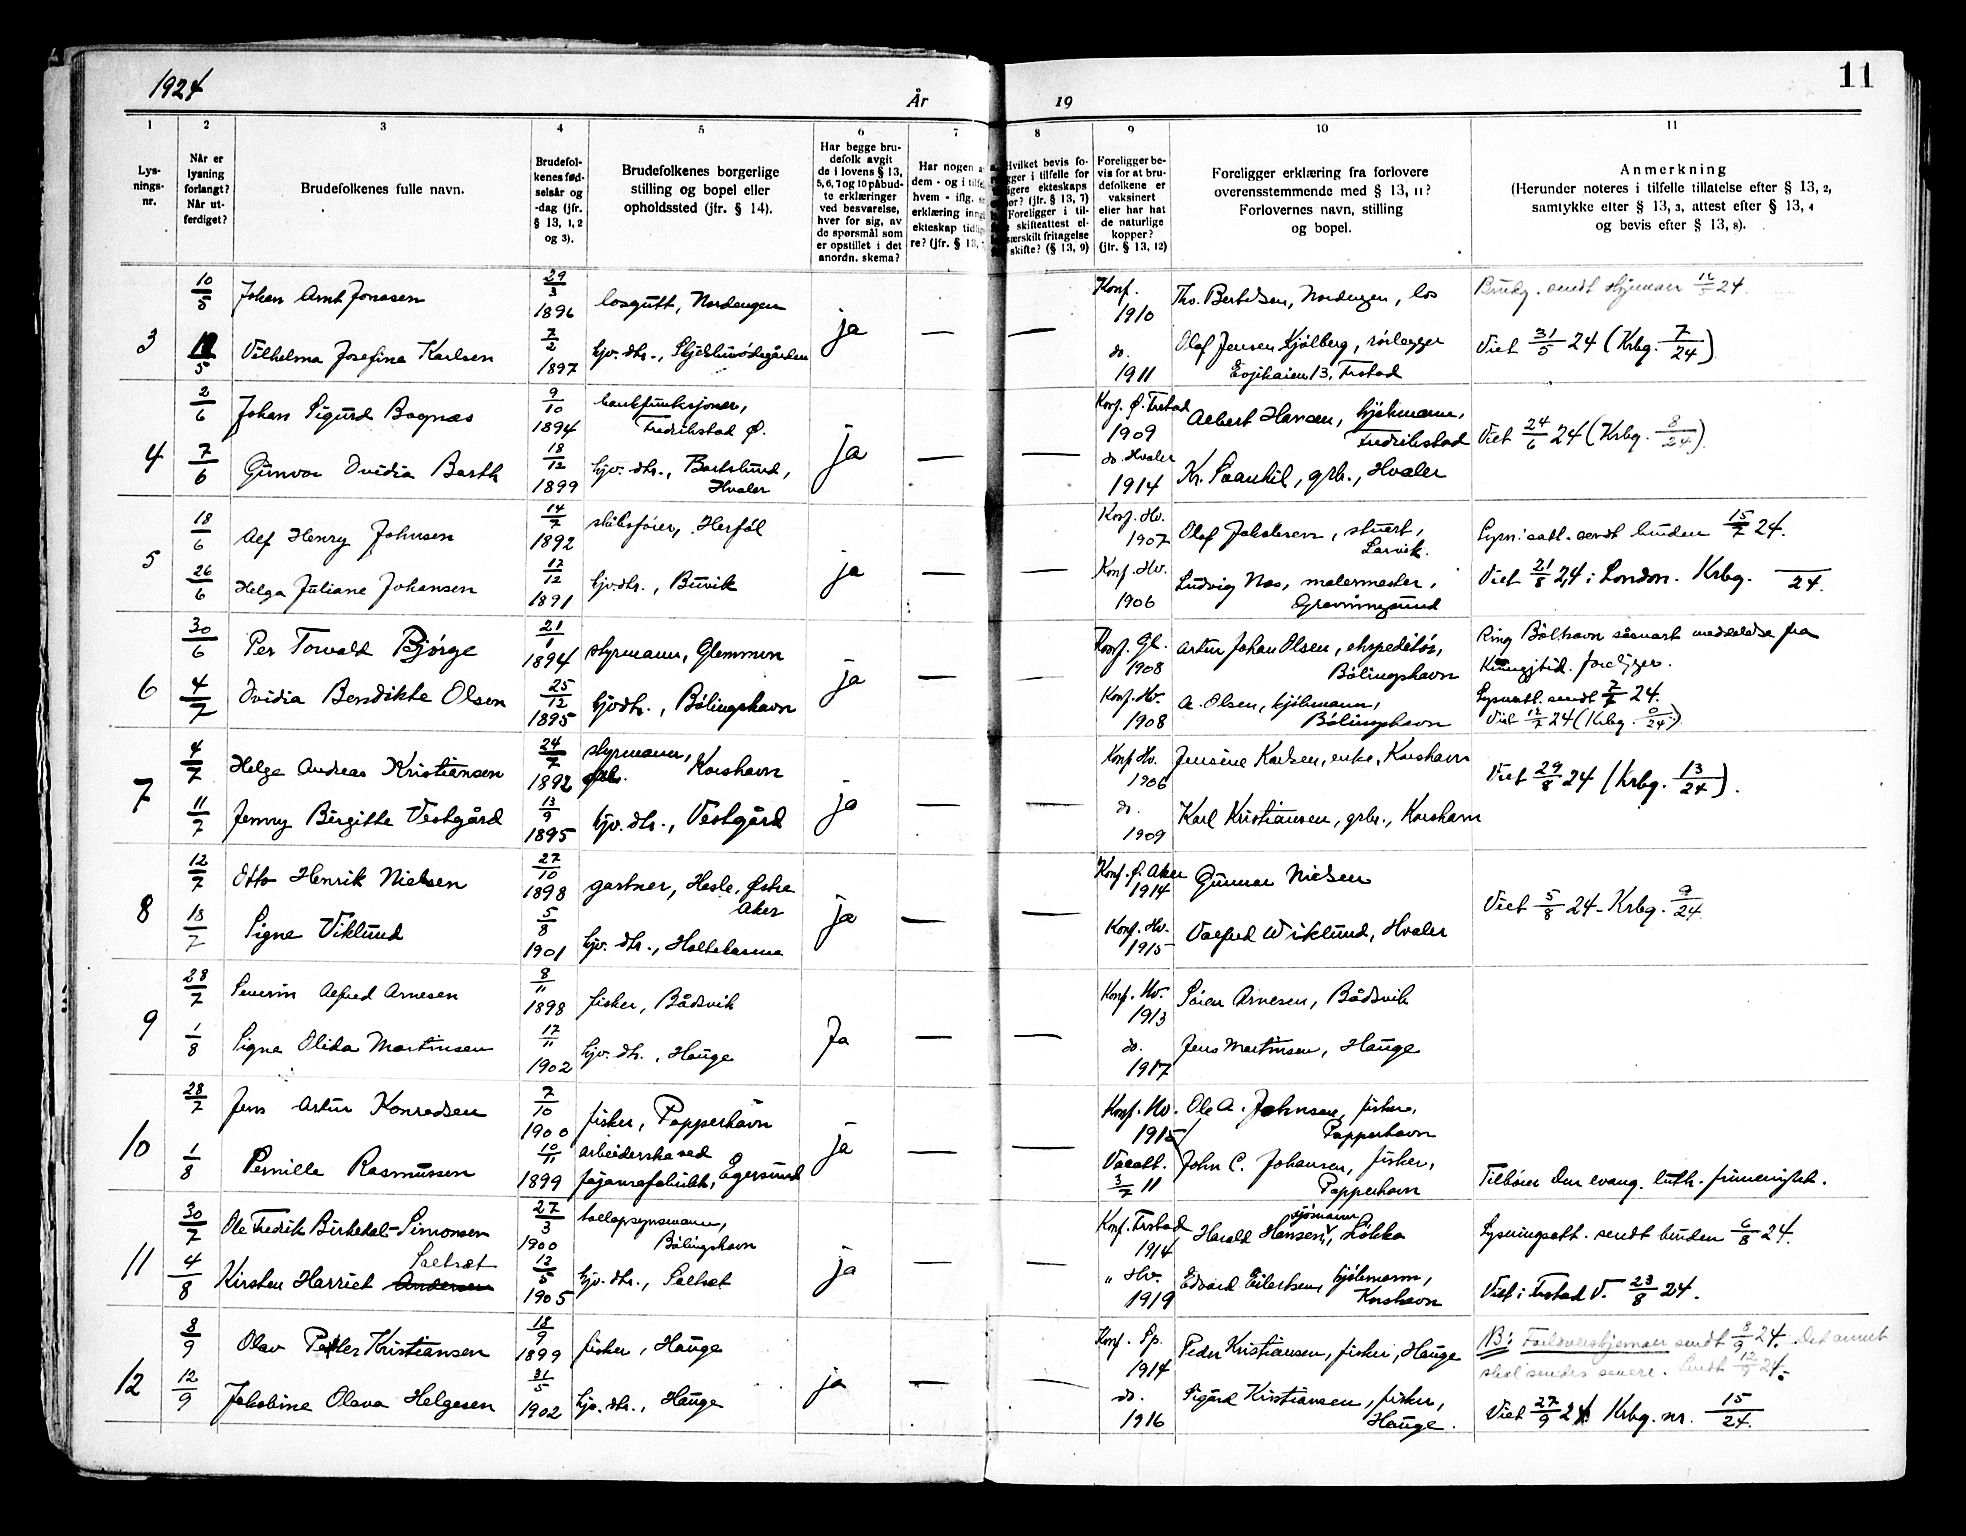 1924
År
19
11
1 2 3 4 5 6 7 8 9 10 11
Lys-
nings-
nr.
Når er
lysning
forlangt?
Når ut-
ferdiget?
Brudefolkenes fulle navn.
Brudefol-
kenes fød-
selsår og
-dag (jfr.
§ 13, 1, 2
og 3).
Brudefolkenes borgerlige
stilling og bopel eller
opholdssted (jfr. § 14).
Har begge bru-
defolk avgit
de i lovens § 13,
5, 6, 7 og 10 påbud-
te erklæringer
ved besvarelse,
hver for sig, av
de spørsmål som
er opstillet i det
anordn. skema?
Har nogen a
dem - og i tilfe
hvem - iflg.
erklæring inng
ekteskap tidlig
re? (jfr. § 13,
Hvilket bevis fo-
gger i tilfelle for
igere ekteskaps
ør? (jfr. § 13, 7)
Foreligger i til-
skifteattest el-
særskilt fritagelse
skifte? (§ 13, 9)
Foreligger be-
vis for at bru-
defolkene er
vaksinert
eller har hat
de naturlige
kopper?
(jfr. § 13, 12)
Foreligger erklæring fra forlovere
overensstemmende med § 13, 11?
Forlovernes navn, stilling
og bopel.
Anmerkning
(Herunder noteres i tilfelle tillatelse efter § 13, 2,
samtykke efter § 13, 3, attest efter § 13, 4
og bevis efter § 13, 8).
3
10/5 Johan Arnt Jonasen 29/3 1896 losgutt, Nordengen ja — — Konf. 1910 Th. Bertelsen, Nordengen, los
Brudg. sendt 24.
/5 Vilhelma Josefine Karlsen 7/2 1897 hjv. dtr., do. 1911 Olaf Jensen Kjølberg, rørlegger
13, Frstad
Viet 31/5 24 (Krbg. 7/24)
4
2/6 Johan Sigurd Bognæs 9/10 1894 bankfunksjonær,
Fredrikstad Ø. ja — — Konf. Ø. Frstad 1909 Albert Hansen, kjøbmann,
Fredrikstad
7/6 Gunvor Ovidia Barth 18/12 1899 hjv. dtr., Bortslund,
Hvaler do. Hvaler 1914 Kr. Paankil, grb., Hvaler
Viet 24/6 24 (Krbg. 8/24)
5
18/6 Alf Henry Johnsen 14/7 1892 skibsfører, Herføl ja — — Konf. Hv. 1907 Olaf Jakobsen, stuert,
Larvik.
Lysn. att. sendt bruden 15/7 24.
26/6 Helga Juliane Johansen 12/12 1891 hjv. dtr., Buvik Konf. Hv. 1906 Ludvig Næs, malermester,
Gravningsund
Viet 21/8 24 i London. Krbg. — 24.
6
30/6 Per Torvald Bjørge 21/1 1894 styrmann, Glemmen ja — — Konf. Gl. 1908 Artur Johan Olsen, ekspeditør,
Bølingshavn
Ring Bølhavn såsnart meddelelse fra
foreligger.
4/7 Ovidia Bendikte Olsen 25/12 1895 hjv. dtr., Bølingshavn Konf. Hv. 1908 A. Olsen, kjøbmann,
Bølingshavn
Lysn. att. sendt 7/7 24.
Viet 12/7 24 (Krbg. 0/24).
7
4/7 Helge Andreas Kristiansen 24/7 1892 styrmann,
grb. Korshavn ja — — Konf. Hv. 1906 Jensine Karlsen, enke, Korshavn
11/7 Jenny Birgitte Vestgård 13/9 1895 hjv. dtr., Vestgård do. 1909 Karl Kristiansen, grbr., Korshavn
Viet 29/8 24 (Krbg. 13/24).
8
12/7 Otto Henrik Nielsen 27/10 1898 gartner, Hasle, Østre
Aker ja — — Konf. Ø. Aker 1914 Gunnar Nielsen
18/7 Signe Viklund 5/8 1901 hjv. dtr., Holtekasene Konf. Hv. 1915 Valfred Wiklund, Hvaler
Viet 5/8 24 - Krbg. 9/24.
9
28/7 Severin Alfred Arnesen 8/11 1898 fisker, Bådsvik Ja — — Konf. Hv. 1913 Søren Arnesen, Bådsvik
1/8 Signe Olida Martinsen 17/11 1902 hjv. dtr., Hauge do. 1917 Jens Martinsen, Hauge
10
28/7 Jens Artur Konradsen 7/10 1900 fisker, Papperhavn ja — — Konf. Hv. 1915 Ole A. Johnsen, fisker,
Papperhavn
1/8 Pernille Rasmussen 10/11 1899 arbeiderske ved
fajansefabrikk, Egersund Vacatt. 3/7 11 John C. Johansen, fisker,
Papperhavn
Tilhører den evang. luth. frimenighet.
11
30/7 Ole Fredrik Birkedal-Simonsen 27/3 1900 tollopsynsmann,
Bølingshavn ja — — Konf. Frstad 1914 Harald Hansen, sjømann, Løkka
Lysningsatt. sendt bruden 6/8 24.
4/8 Kirsten Harriet Andersen Saltræt 13/5 1905 hjv. dtr., Saltræt " Hv. 1919 Edvard Eilertsen, kjøbmann,
Korshavn
Viet i Frstad V. 23/8 24.
12
8/9 Olav Petter Kristiansen 18/9 1899 fisker, Hauge ja — — Konf. Sp. 1914 Peder Kristiansen, fisker, Hauge
NB: Forloverskjemaer sendt 8/9 24. Det annet
skal sendes senere. Sendt 12/9 24.
12/9 Jakobine Olava Helgesen 31/5 1902 hjv. dtr., Hauge do. 1916 Sigurd Kristiansen, fisker,
Hauge.
Viet 27/9 24 Krbg. nr. 15/24.